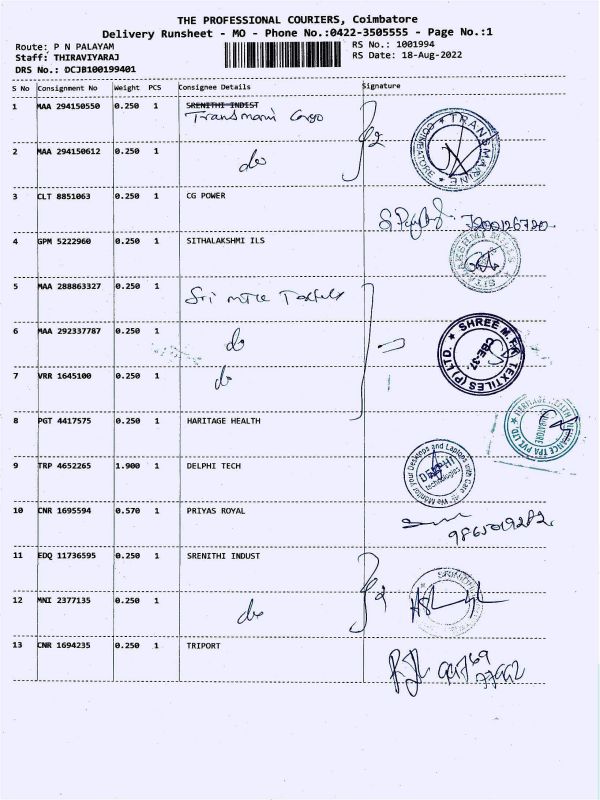 THE PROFESSIONAL COURIERS, Coimbatore
Delivery Runsheet - MO - Phone No.:0422-3505555 - Page No.:1
Route: P N PALAYAM
RS No.: 1001994
Staff: THIRAVIYARAJ
RS Date: 18-Aug-2022
DRS No.: DCJB100199401
S No Consignment No Weight PCS Consignee Details Signature
1 MAA 294150550 0.250 1 SRENITHI INDIST
Transmani Cargo
2 MAA 294150612 0.250 1 do
TRANSMARINE COIMBATORE
3 CLT 8851063 0.250 1 CG POWER
7200126720
4 GPM 5222960 0.250 1 SITHALAKSHMI ILS
5 MAA 288863327 0.250 1 Sri
6 MAA 292337787 0.250 1 do
SHREE M.T.K TEXTILES (P) LTD. CBE-37.
7 VRR 1645100 0.250 1 do
8 PGT 4417575 0.250 1 HARITAGE HEALTH
HERITAGE HEALTH INSURANCE TPA PVT LTD. COIMBATORE
9 TRP 4652265 1.900 1 DELPHI TECH
We Monitor your Desktops and Laptops with Care
DELPHI
technologies
10 CNR 1695594 0.570 1 PRIYAS ROYAL
9865019282
11 EDQ 11736595 0.250 1 SRENITHI INDUST
12 MNI 2377135 0.250 1 do
13 CNR 1694235 0.250 1 TRIPORT